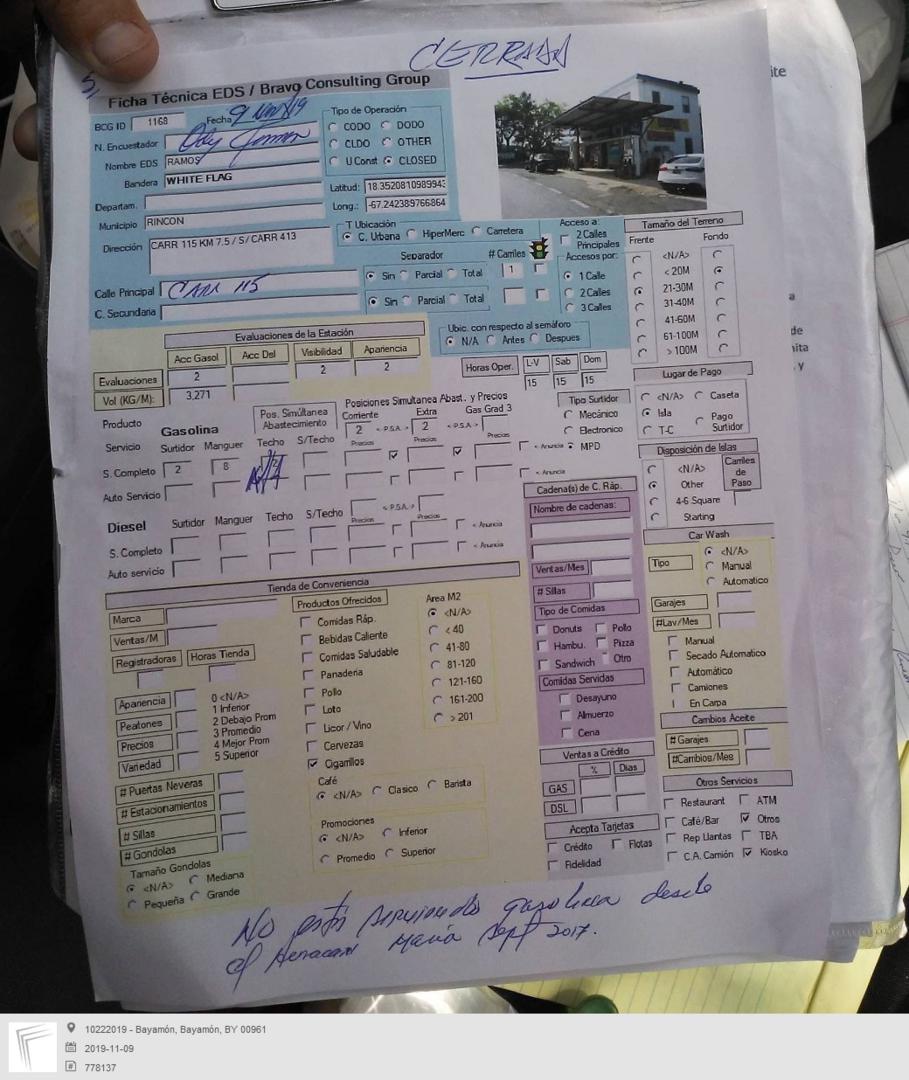 CERRADA
Ficha Técnica EDS / Bravo Consulting Group
BCG ID 1168 Fecha 9 Nov/19
N. Encuestador
Nombre EDS RAMOS
Bandera WHITE FLAG
Departam.
Municipio RINCON
Dirección CARR 115 KM 7.5 / S/ CARR 413
Calle Principal CARR 115
C. Secundaria
Tipo de Operación
CODO DODO
CLDO OTHER
U Const CLOSED
Latitud: 18.3520810989943
Long.: -67.242389766864
T Ubicación
C. Urbana HiperMerc Carretera
Separador # Carriles
Sin Parcial Total 1
Sin Parcial Total
Acceso a:
2 Calles
Principales
Accesos por:
1 Calle
2 Calles
3 Calles
Ubic. con respecto al semáforo
N/A Antes Despues
Tamaño del Terreno
Frente Fondo
<N/A>
< 20M
21-30M
31-40M
41-60M
61-100M
> 100M
Evaluaciones de la Estación
Acc Gasol Acc Dsl Visibilidad Apariencia
Evaluaciones 2 2 2
Vol (KG/M): 3,271
Horas Oper. L-V Sab Dom
15 15 15
Lugar de Pago
<N/A> Caseta
Isla Pago
Surtidor
T-C
Tipo Surtidor
Mecánico
Electronico
MPD
Producto
Servicio
Gasolina
Pos. Simúltanea
Abastecimiento
Posiciones Simultanea Abast. y Precios
Corriente Extra Gas Grad 3
2 < P.S.A. > 2 < P.S.A. >
Surtidor Manguer Techo S/Techo Precios Precios Precios
S. Completo 2 8 < Anuncia
Auto Servicio < Anuncia
Diesel Surtidor Manguer Techo S/Techo < P.S.A. >
Precios Precios
S. Completo < Anuncia
Auto servicio < Anuncia
Disposición de Islas
<N/A>
Other
4-6 Square
Starting
Carriles
de
Paso
Cadena(s) de C. Ráp.
Nombre de cadenas:
Ventas/Mes
# Sillas
Tipo de Comidas
Donuts Pollo
Hambu. Pizza
Sandwich Otro
Comidas Servidas
Desayuno
Almuerzo
Cena
Car Wash
Tipo
<N/A>
Manual
Automatico
Garajes
#Lav/Mes
Manual
Secado Automatico
Automático
Camiones
En Carpa
Cambios Aceite
#Garajes
#Cambios/Mes
Tienda de Conveniencia
Marca
Ventas/M
Registradoras Horas Tienda
Apariencia
Peatones
Precios
Variedad
0 <N/A>
1 Inferior
2 Debajo Prom
3 Promedio
4 Mejor Prom
5 Superior
# Puertas Neveras
# Estacionamientos
# Sillas
# Gondolas
Tamaño Gondolas
<N/A> Mediana
Pequeña Grande
Productos Ofrecidos
Comidas Ráp.
Bebidas Caliente
Comidas Saludable
Panaderia
Pollo
Loto
Licor / Vino
Cervezas
Cigarrillos
Area M2
<N/A>
< 40
41-80
81-120
121-160
161-200
> 201
Café
<N/A> Clasico Barista
Promociones
<N/A> Inferior
Promedio Superior
Ventas a Crédito
% Dias
GAS
DSL
Acepta Tarjetas
Crédito Flotas
Fidelidad
Otros Servicios
Restaurant ATM
Café/Bar Otros
Rep Llantas TBA
C.A. Camión Kiosko
No está sirviendo gasolina desde
el Huracan María Sept 2017.
10222019 - Bayamón, Bayamón, BY 00961
2019-11-09
778137